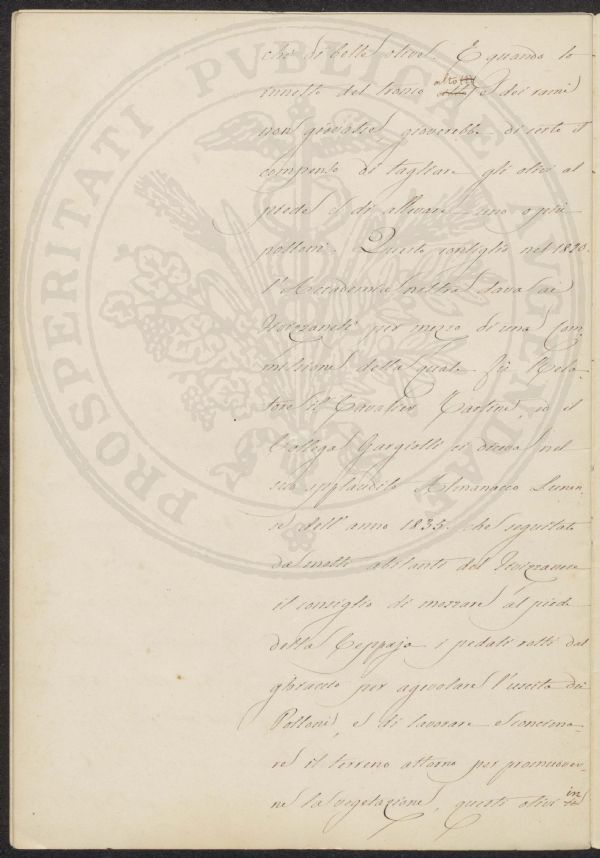 che di belle olive. E quando lo
innesto del tronco alto (14) e dei rami
non giovasse, gioverebbe di certo il
compenso di tagliare gli olivi al
piede e di allevare uno o più
polloni. Questo consiglio nel 1830.
l'Accademia nostra dava ai
per mezzo di una Com-
missione della quale fù Rela-
tore il Cavalier Tartini, ed il
Collega Gargiolli ci diceva nel
suo applaudito Almanacco Lunen-
se dell'anno 1835. che seguitato
da molti abitanti del
il consiglio di mozzare al piede
della Ceppaja i pedali rotti dal
ghiaccio per agevolare l'uscita dei
Polloni, e di lavorare e concima-
re il terreno attorno per promuover-
ne la vegetazione, questi olivi in
PROSPERITATI PVBLICAE AVGENDAE